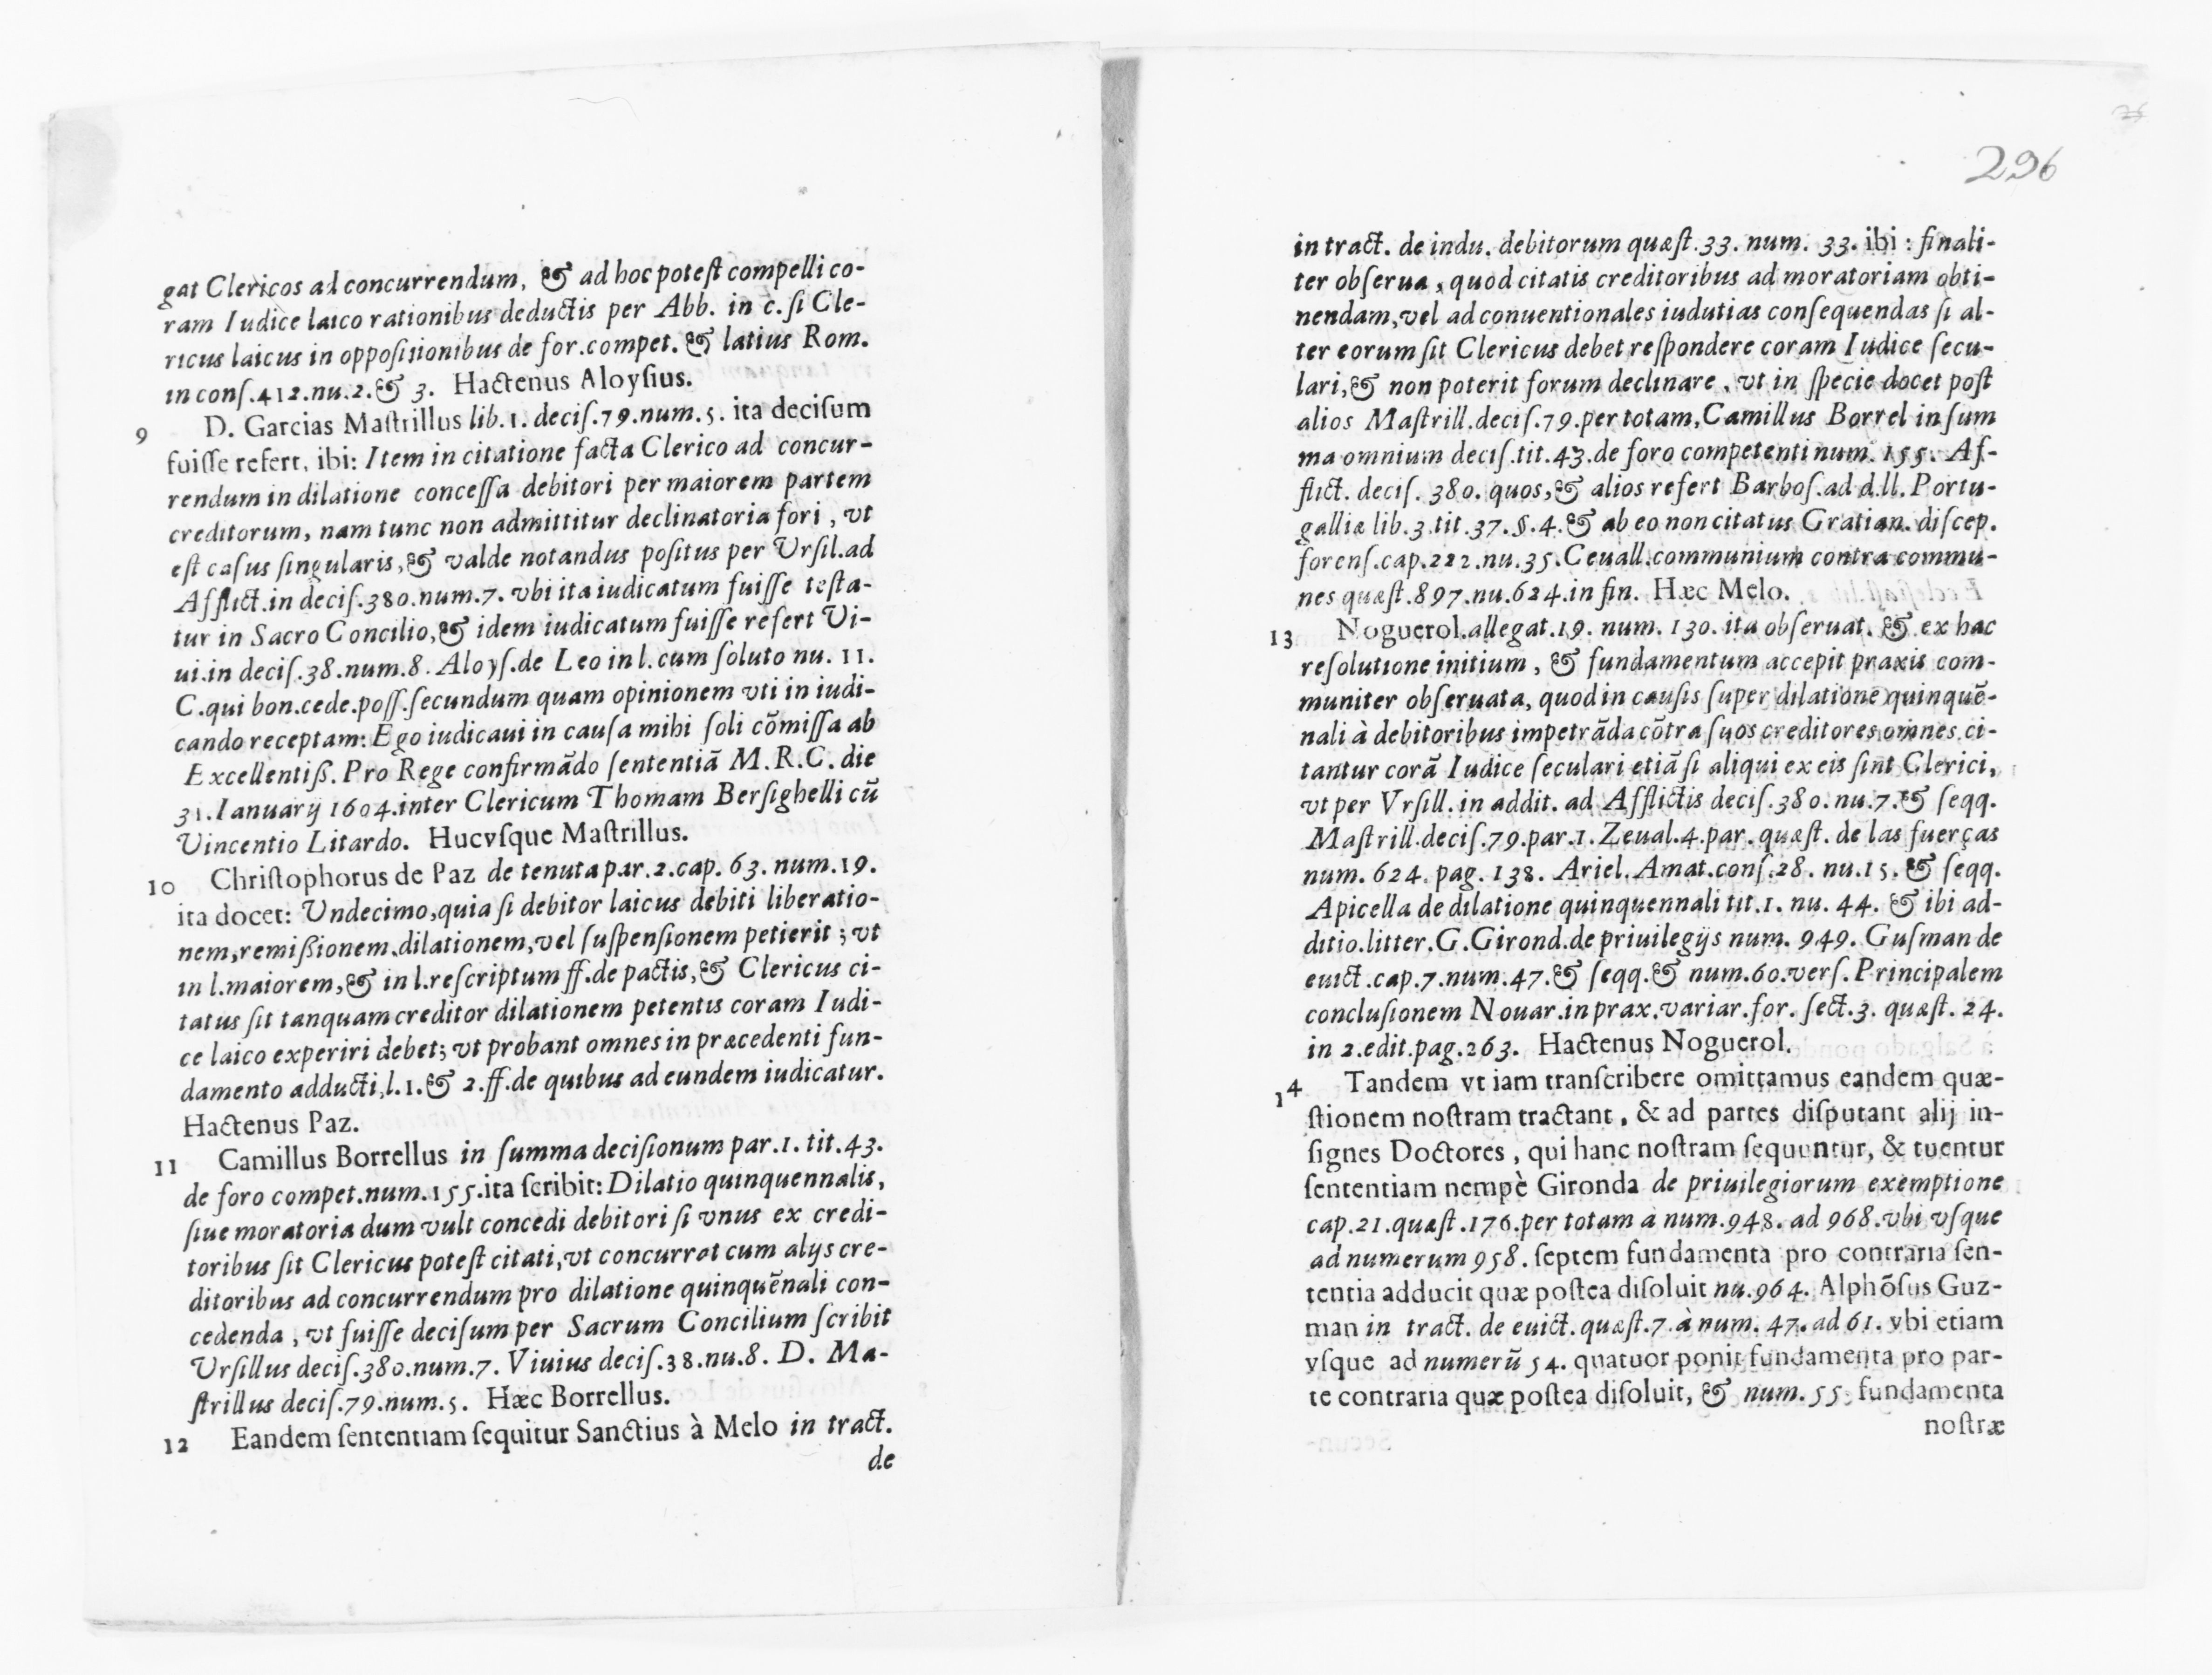 gat Clericos ad concurrendum, & ad hoc potest compelli co-
ram Iudice laico rationibus deductis per Abb. in c. si Cle-
ricus laicus in oppositionibus de for. compet. & latius Rom.
in cons. 412. nu. 2. & 3. Hactenus Aloysius.
9 D. Garcias Mastrillus lib. 1. decis. 79. num. 5. ita decisum
fuisse refert, ibi: Item in citatione facta Clerico ad concur-
rendum in dilatione concessa debitori per maiorem partem
creditorum, nam tunc non admittitur declinatoria fori, vt
est casus singularis, & valde notandus positus per Vrsil. ad
Afflict. in decis. 380. num. 7. vbi ita iudicatum fuisse testa-
tur in Sacro Concilio, & idem iudicatum fuisse refert Vi-
ui. in decis. 38. num. 8. Aloys. de Leo in l. cum soluto nu. 11.
C. qui bon. cede. poss. secundum quam opinionem vti in iudi-
cando receptam: Ego iudicaui in causa mihi soli cõmissa ab
Excellentiß. Pro Rege confirmãdo sententiã M. R. C. die
31. Ianuarij 1604. inter Clericum Thomam Bersighelli cũ
Vincentio Litardo. Hucvsque Mastrillus.
10 Christophorus de Paz de tenuta par. 2. cap. 63. num. 19.
ita docet: Vndecimo, quia si debitor laicus debiti liberatio-
nem, remißionem, dilationem, vel suspensionem petierit; vt
in l. maiorem, & in l. rescriptum ff. de pactis, & Clericus ci-
tatus sit tanquam creditor dilationem petentis coram Iudi-
ce laico experiri debet; vt probant omnes in præcedenti fun-
damento adducti, l. 1. & 2. ff. de quibus ad eundem iudicatur.
Hactenus Paz.
11 Camillus Borrellus in summa decisionum par. 1. tit. 43.
de foro compet. num. 155. ita scribit: Dilatio quinquennalis,
siue moratoria dum vult concedi debitori si vnus ex credi-
toribus sit Clericus potest citati, vt concurrat cum alijs cre-
ditoribus ad concurrendum pro dilatione quinquẽnali con-
cedenda, vt fuisse decisum per Sacrum Concilium scribit
Vrsillus decis. 380. num. 7. Viuius decis. 38. nu. 8. D. Ma-
strillus decis. 79. num. 5. Hæc Borrellus.
12 Eandem sententiam sequitur Sanctius à Melo in tract.
de
296
in tract. de indu. debitorum quæst. 33. num. 33. ibi: finali-
ter obserua, quod citatis creditoribus ad moratoriam obti-
nendam, vel ad conuentionales iudutias consequendas si al-
ter eorum sit Clericus debet respondere coram Iudice secu-
lari, & non poterit forum declinare, vt in specie docet post
alios Mastrill. decis. 79. per totam, Camillus Borrel in sum
ma omnium decis. tit. 43. de foro competenti num. 155. Af-
flict. decis. 380. quos, & alios refert Barbos. ad d. ll. Portu-
galliæ lib. 3. tit. 37. §. 4. & ab eo non citatus Gratian. discep.
forens. cap. 222. nu. 35. Ceuall. communium contra commu-
nes quæst. 897. nu. 624. in fin. Hæc Melo.
13 Noguerol. allegat. 19. num. 130. ita obseruat. & ex hac
resolutione initium, & fundamentum accepit praxis com-
muniter obseruata, quod in causis super dilatione quinquẽ-
nali à debitoribus impetrãda cõtra suos creditores omnes ci-
tantur corã Iudice seculari etiã si aliqui ex eis sint Clerici,
vt per Vrsill. in addit. ad Afflictis decis. 380. nu. 7. & seqq.
Mastrill. decis. 79. par. 1. Zeual. 4. par. quæst. de las fuerças
num. 624. pag. 138. Ariel. Amat. cons. 28. nu. 15. & seqq.
Apicella de dilatione quinquennali tit. 1. nu. 44. & ibi ad-
ditio. litter. G. Girond. de priuilegijs num. 949. Gusman de
euict. cap. 7. num. 47. & seqq. & num. 60. vers. Principalem
conclusionem Nouar. in prax. variar. for. sect. 3. quæst. 24.
in 2. edit. pag. 263. Hactenus Noguerol.
14 Tandem vt iam transcribere omittamus eandem quæ-
stionem nostram tractant, & ad partes disputant alij in-
signes Doctores, qui hanc nostram sequuntur, & tuentur
sententiam nempè Gironda de priuilegiorum exemptione
cap. 21. quæst. 176. per totam à num. 948. ad 968. vbi vsque
ad numerum 958. septem fundamenta pro contraria sen-
tentia adducit quæ postea disoluit nu. 964. Alphõsus Guz-
man in tract. de euict. quæst. 7. à num. 47. ad 61. vbi etiam
vsque ad numerũ 54. quatuor ponit fundamenta pro par-
te contraria quæ postea disoluit, & num. 55. fundamenta
nostræ